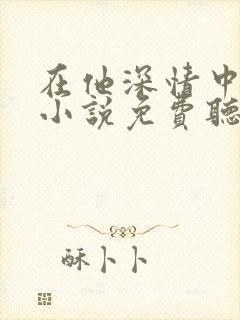 在他深情中
小說免費聽
酥卜卜